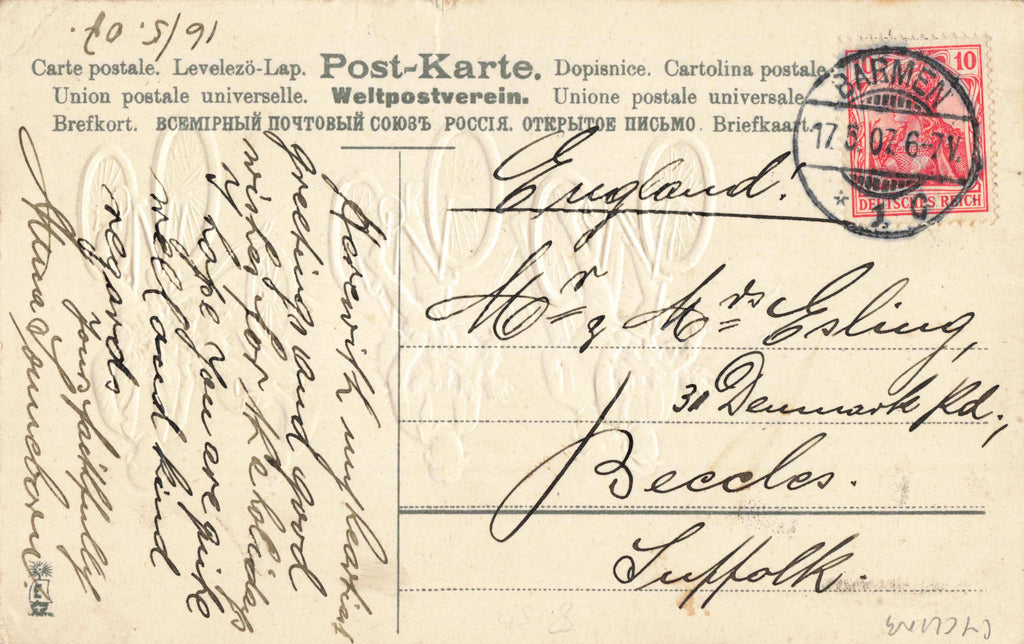 16/5. 07.
Carte postale. Levelezö-Lap. Post-Karte. Dopisnice. Cartolina postale.
Union postale universelle. Weltpostverein. Unione postale universale.
Brefkort. ВСЕМІРНЫЙ ПОЧТОВЫЙ СОЮЗЪ РОССІЯ. ОТКРЫТОЕ ПИСЬМО. Briefkaart.
10
DEUTSCHES REICH
BARMEN
17.5.07.6-7V.
* 1. G
England!
Mr & Mrs Esling,
31 Denmark Rd.,
Beccles.
Suffolk.
Herewith my heartiest
greetings and good
wishes for the holidays
I hope you are quite
well and kind
regards
yours faithfully
Anna
CYCLING